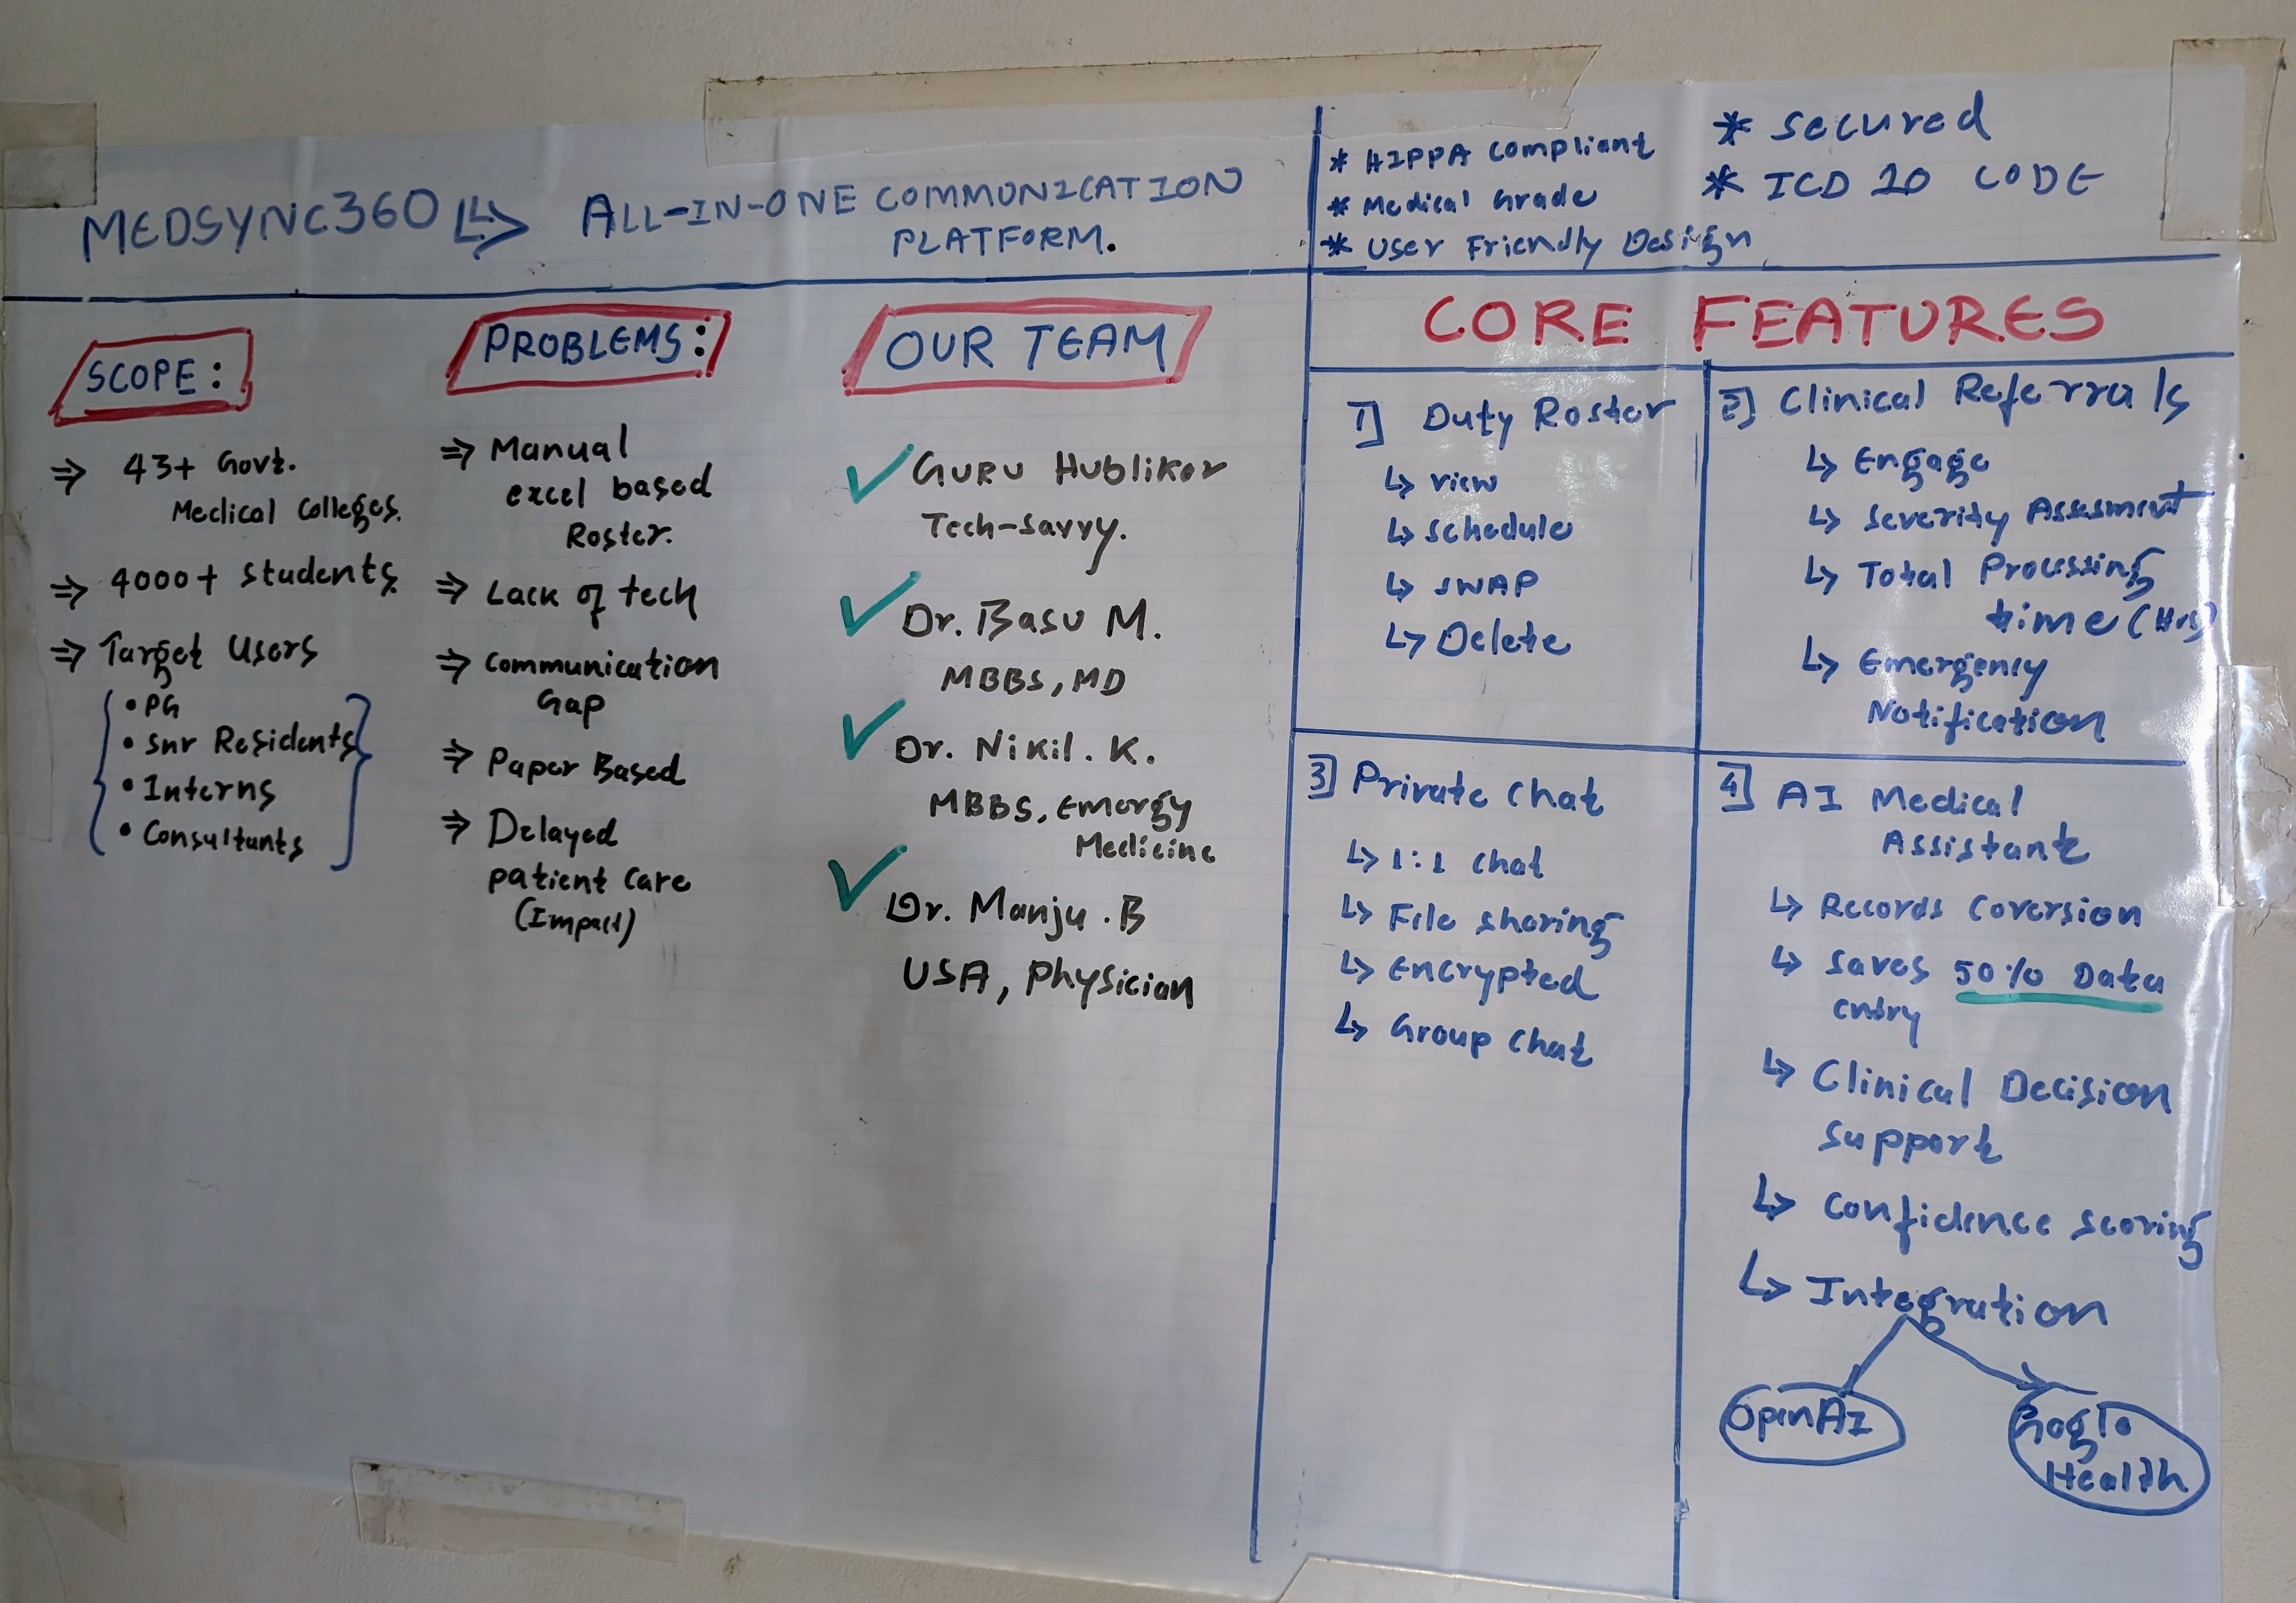 MEDSYNC360 ↳> ALL-IN-ONE COMMUNICATION
PLATFORM.
* HIPPA Compliant
* Medical Grade
* User Friendly Design
* Secured
* ICD 10 CODE
SCOPE:
⇒ 43+ Govt.
Medical Colleges.
⇒ 4000+ Students.
⇒ Target Users
• PG
• Snr Residents
• Interns
• Consultants
PROBLEMS:
⇒ Manual
excel based
Roster.
⇒ Lack of tech
⇒ Communication
Gap
⇒ Paper Based
⇒ Delayed
patient care
(Impact)
OUR TEAM
✓ GURU Hublikar
Tech-Savvy.
✓ Dr. Basu M.
MBBS, MD
✓ Dr. Nikil. K.
MBBS, Emergy
Medicine
✓ Dr. Manju . B
USA, Physician
CORE FEATURES
1] Duty Roster
↳ view
↳ schedule
↳ SWAP
↳ Delete
2] Clinical Referrals
↳ Engage
↳ Severity Assesment
↳ Total Processing
time (Hrs)
↳ Emergency
Notification
3] Private Chat
↳ 1:1 chat
↳ File sharing
↳ Encrypted
↳ Group chat
4] AI Medical
Assistant
↳ Records Coversion
↳ Saves 50% Data
entry
↳ Clinical Decision
Support
↳ Confidence scoring
↳ Integration
OpenAI
Gogle
Health